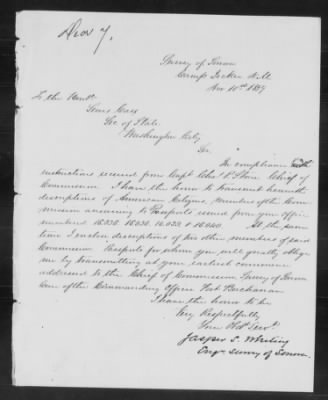 Nov 7.
Survey of Sonora
Camp Jecker N.M.
Nov 10th 1859
To the Honl.
Lewis Cass
Sec of State
Washington City
Sir
In compliance with
instructions received from Capt Chas P. Stone Chief of
Commission I have the honor to transmit herewith
descriptions of American Citizens, Members of the Com
mission answering to Passports issued from your office
numbered
At the same
time I enclose descriptions of six other members of said
Commission Passports for whom you will greatly oblige
me by transmitting at your earliest convenience
addressed to the Chief of Commission Survey of Sonora
Care of the Commanding Officer Fort Buchanan
I have the honor to be
Very Respectfully
Your Obt Servt
Jasper S. Whiting
Engr Survey of Sonora